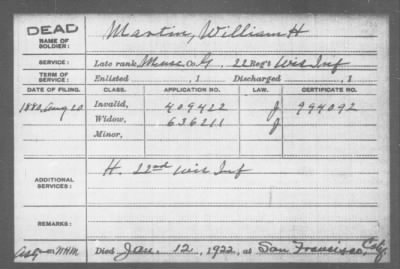 DEAD
NAME OF SOLDIER: Martin, William H
SERVICE: Late rank, Musc, Co. G, 22 Reg't Wis Inf
TERM OF SERVICE: Enlisted , 1 Discharged , 1
DATE OF FILING. CLASS. APPLICATION NO. LAW. CERTIFICATE NO.
1880, Aug 20 Invalid, 409422 J 994092
Widow, 636211 J
Minor,
ADDITIONAL SERVICES: H. 22nd Wis Inf
REMARKS:
Died Jan. 12, 1922, at San Francisco, Calif